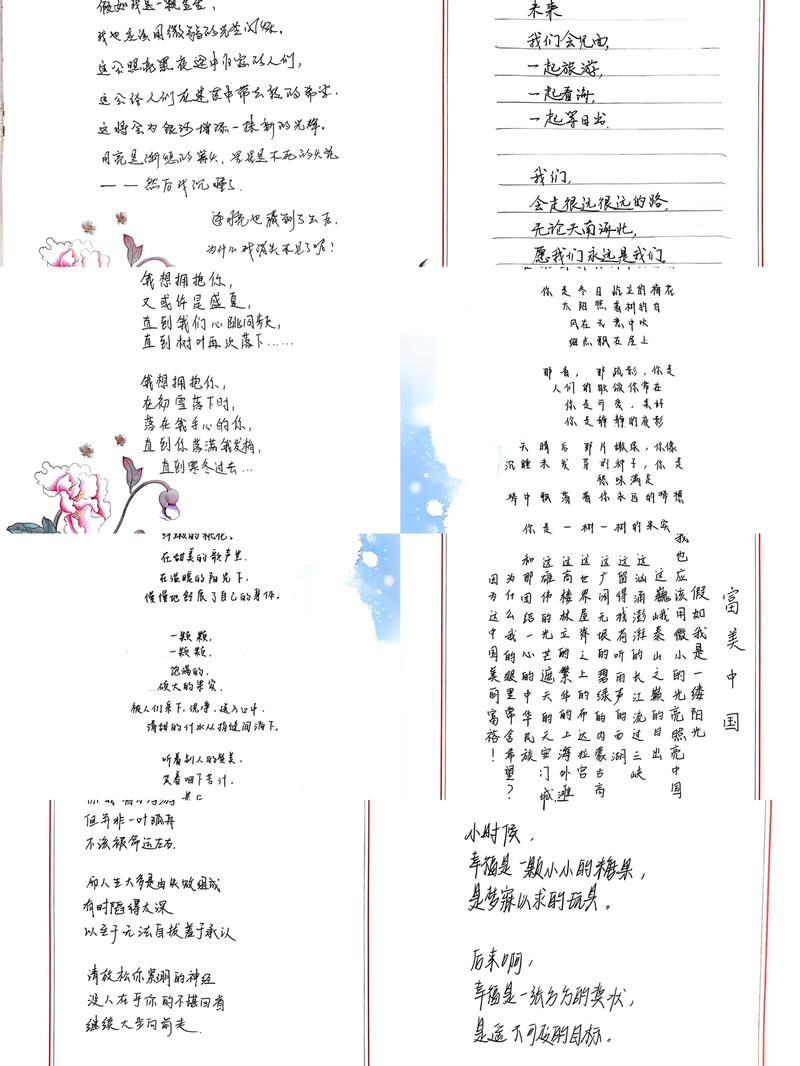 假如我是一颗星星,
我也应该用微弱的光芒闪烁,
这公照亮黑夜途中归家的人们,
这公给人们在迷茫中带去数的希望.
这将会为银河增添一抹新的光辉。
月亮是渐愈的
然后我沉睡了
为什么我消失不见了呢!
未来
我们会见面,
一起旅游,
一起看海,
一起等日出.
我们,
会走很远很远的路,
无论天南海北,
愿我们永远是我们。
我想拥抱你,
又或许是盛夏,
直到我们心跳同频,
直到树叶再次落下……
我想拥抱你,
在初雪落下时,
落在我手心的你,
直到你落满我发梢,
直到寒冬过去…
你是冬日屹立的梅花
太阳照着树的自
风在云意中吹
细点飘在屋上
人们的歌颂你常在
你是可爱,美好
你是静静的夜影
天晴后 那片 你像
沉睡未发芽的种子,你是
梦中飘落着你永远的梦想
你是一树一树的果实
在甜美的歌声里.
在温暖的阳光下,
慢慢地舒展了自己的身体.
一颗颗,
一颗颗,
饱满的,
硕大的果实.
被人们采下,洗净,送入口中.
清甜的汁水从指缝间淌下.
听着别人的赞美,
又看咽下苦汁.
富美中国
假如我是一缕阳光
我也应该用微小之光亮照亮中国
这巍峨泰山巅的日出
这汹涌澎湃长江的流过三峡
这留得我有听雨声的西湖
这广阔无垠的碧绿的内蒙古高
这世界屋脊之上的布达拉宫
这高楼林立的繁华的上海外滩
这雄伟的光芒遮天的天安门城
和那团结一心的中华民族
因为什么我的眼里常含希望?
为什么中国美丽富裕!
但并非一叶孤舟
不该被命运左右.
而人生大多是由失败组成
有时陷得太深
以至于无法自拔羞于承认
请放松你紧绷的神经
没人在乎你的不堪回首
继续大步向前走.
小时候,
幸福是一颗小小的糖果,
是梦寐以求的玩具。
后来啊,
幸福是一张方方的奖状,
是遥不可及的目标。